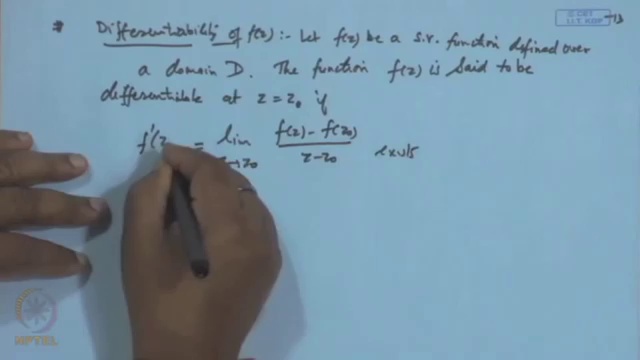 © CET
I.I.T. KGP
* Differentiability of f(z) :- Let f(z) be a s.v. function defined over
a domain D. The function f(z) is said to be
differentiable at z = z₀ if
f'(z = lim f(z) - f(z₀) / z - z₀ exists
NPTEL